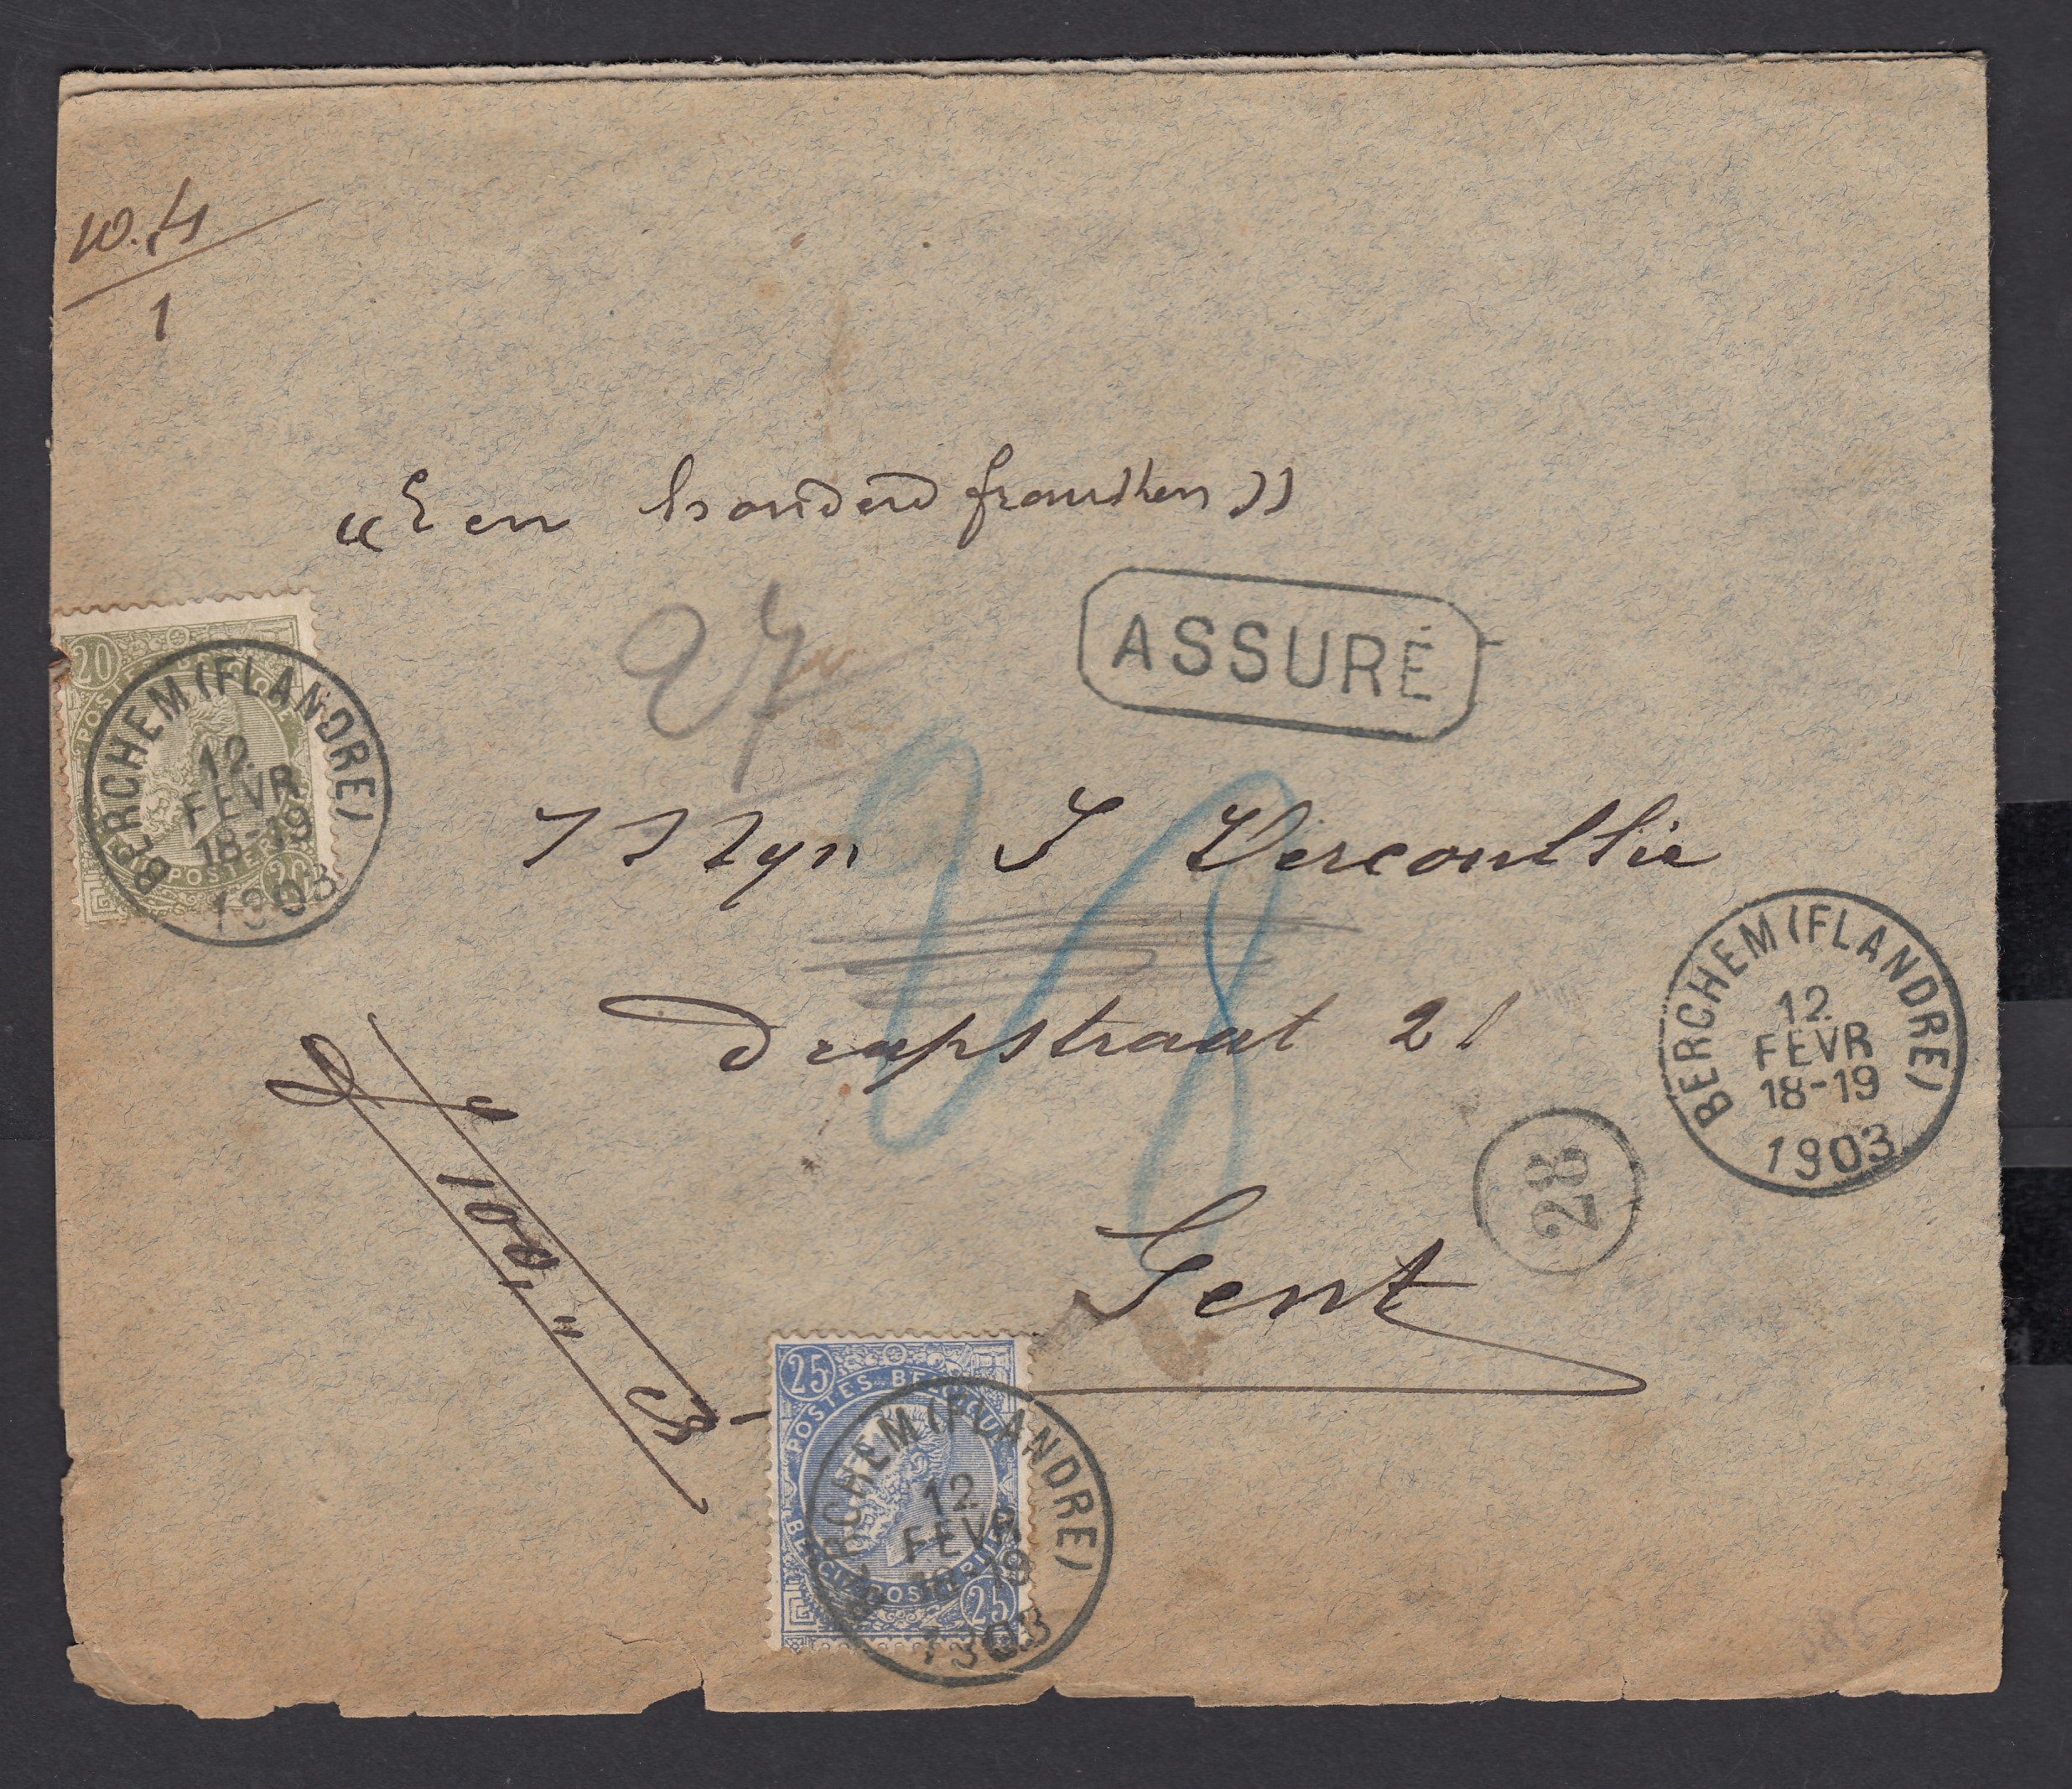 10.4
1
«Een honderd franken»
27
ASSURÉ
20
BERCHEM (FLANDRE)
12
FEVR
18-19
1903
Myn J Vercoullie
28
Drapstraat 21
BERCHEM (FLANDRE)
12
FEVR
18-19
1903
28
Gent
100,"
25
POSTES BELGIQUE
25
BERCHEM (FLANDRE)
12
FEVR
18-19
1903